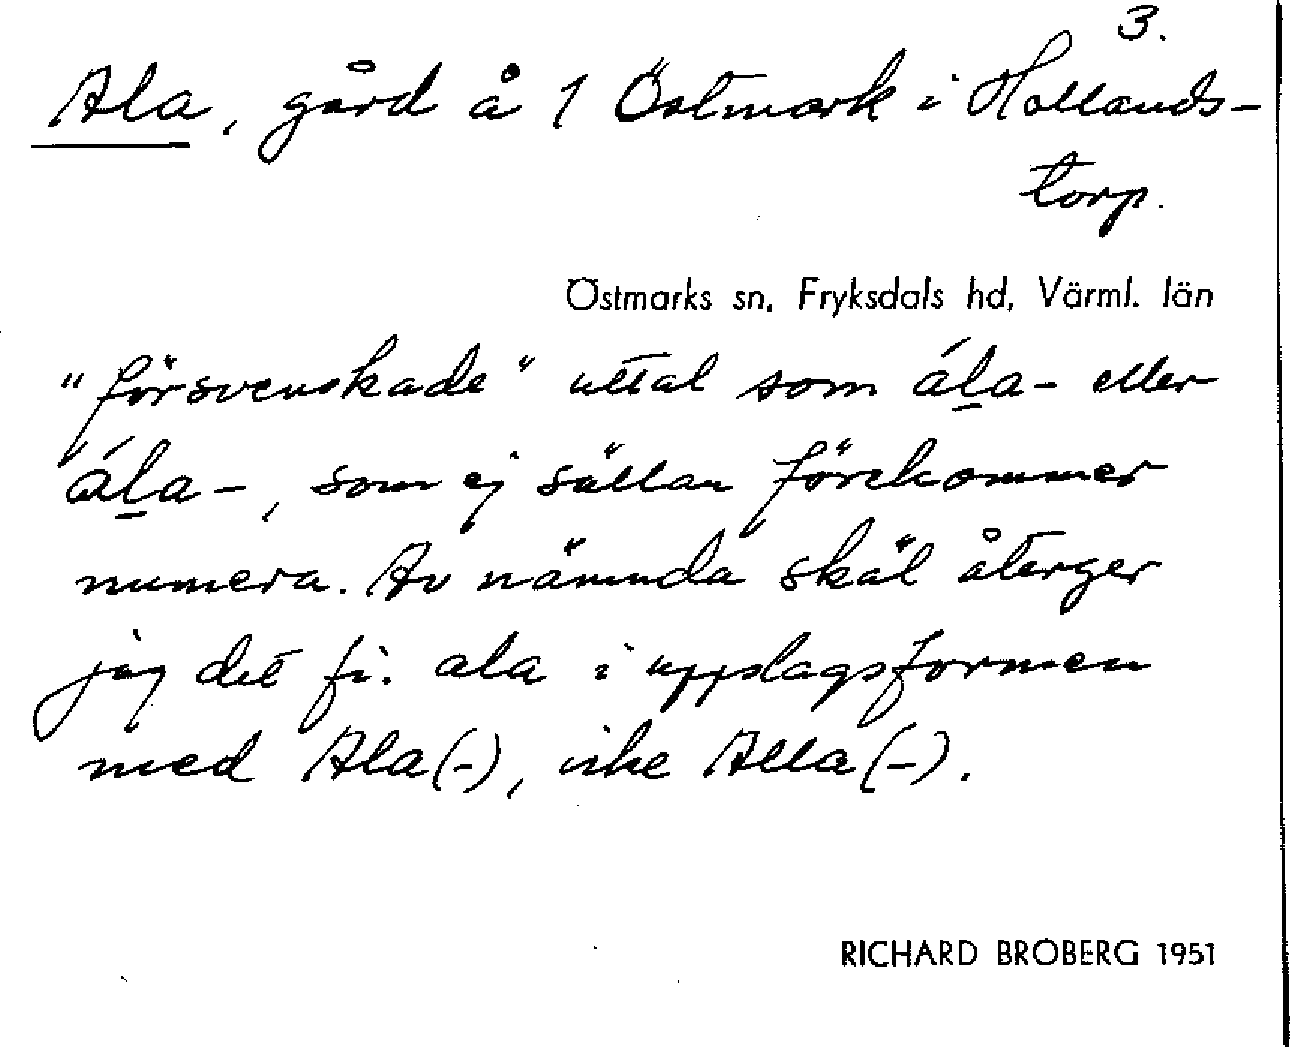 3.
Ala, gård å 1 Östmark i Hollands-
torp.
Östmarks sn, Fryksdals hd, Värml. län
"försvenskade" uttal som ál̲a- eller
ál̲a-, som ej sällan förekommer
numera. Av nämnda skäl återger
jag det fi. ala i uppslagsformen
med Ala(-), icke Alla(-).
RICHARD BROBERG 1951